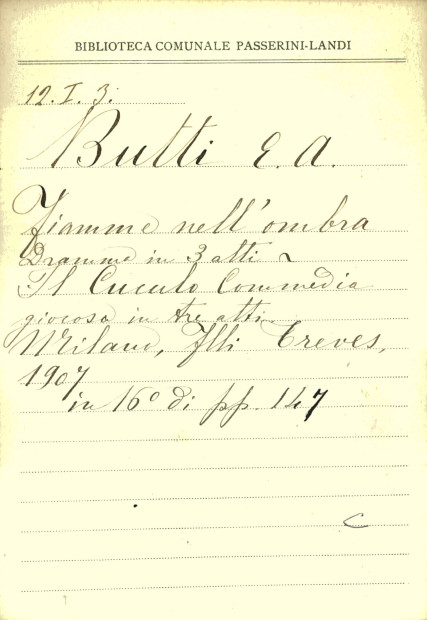 BIBLIOTECA COMUNALE PASSERINI-LANDI
12. I. 3.
Butti E. A.
Fiamme nell'ombra
Dramme in 3 atti ~
Il Cuculo Commedia
giocosa in tre atti.
Milano, Flli Treves,
1907
in 16º di pp. 147